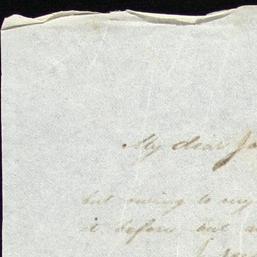 My dear Ja
but owing to my
it before, but